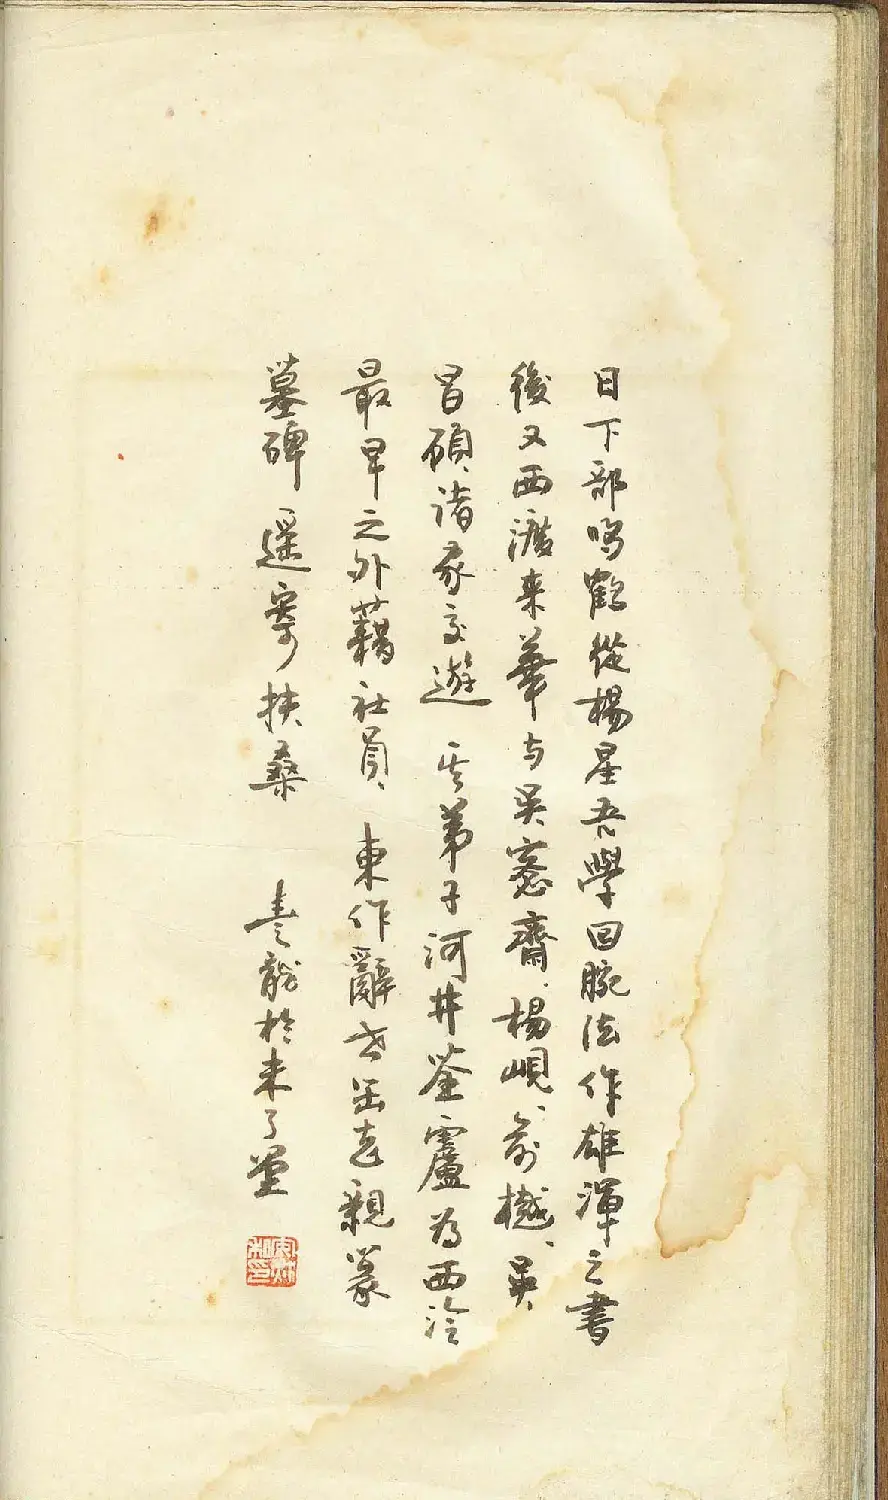 日下部鳴鶴從楊星吾學回腕法作雄渾之書
後又西渡来華与吳愙齋、楊峴、俞樾、吳
昌碩、諸家交遊 其弟子河井荃廬为西泠
最早之外藉社員、東作辭世缶老親篆
墓碑遥寄扶桑 龍於未了堂